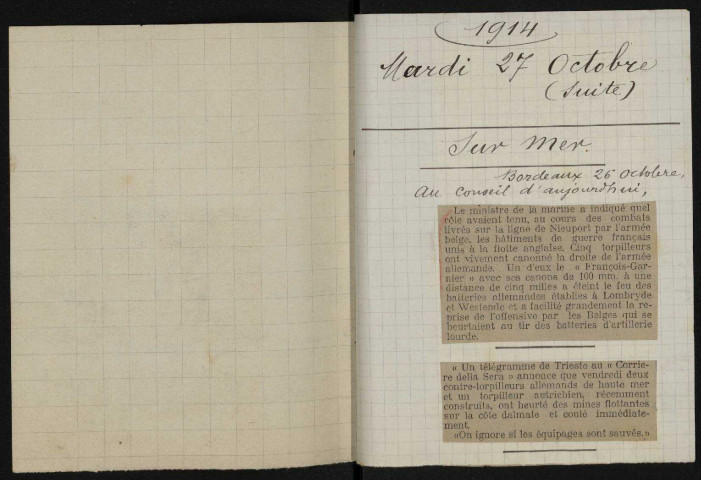 1914
Mardi 27 Octobre
(Suite)
Sur Mer.
Bordeaux 26 Octobre,
Au Conseil d'aujourdhui,
Le ministre de la marine a indiqué quel
rôle avaient tenu, au cours des combats
livrés sur la ligne de Nieuport par l'armée
belge, les bâtiments de guerre français
unis à la flotte anglaise. Cinq torpilleurs
ont vivement canonné la droite de l'armée
allemande. Un d'eux le « François-Gar-
nier » avec ses canons de 100 mm. à une
distance de cinq milles a éteint le feu des
batteries allemandes établies à Lombryde
et Westende et a facilité grandement la re-
prise de l'offensive par les Belges qui se
heurtaient au tir des batteries d'artillerie
lourde.
« Un télégramme de Trieste au « Corrie-
re della Sera » annonce que vendredi deux
contre-torpilleurs allemands de haute mer
et un torpilleur autrichien, récemment
construits, ont heurté des mines flottantes
sur la côte dalmate et coulé immédiate-
ment.
«On ignore si les équipages sont sauvés.»